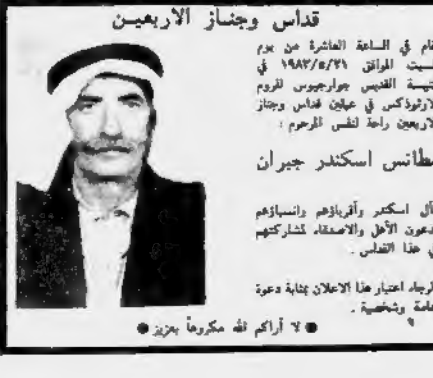 قداس وجناز الاربعين
قام في الساعة العاشرة من يوم
الموافق ١٩٨٣/٥/٢١ في
القديس جوارجيوس للروم
في عبلين قداس وجناز
راحة لنفس المرحوم :
اسكندر جبران
آل اسكندر وأقرباؤهم وانسباؤهم
الأهل والاصدقاء لمشاركتهم
هذا القداس .
اعتبار هذا الاعلان بمثابة دعوة
عامة وشخصية .
لا أراكم الله مكروهاً بعزيز